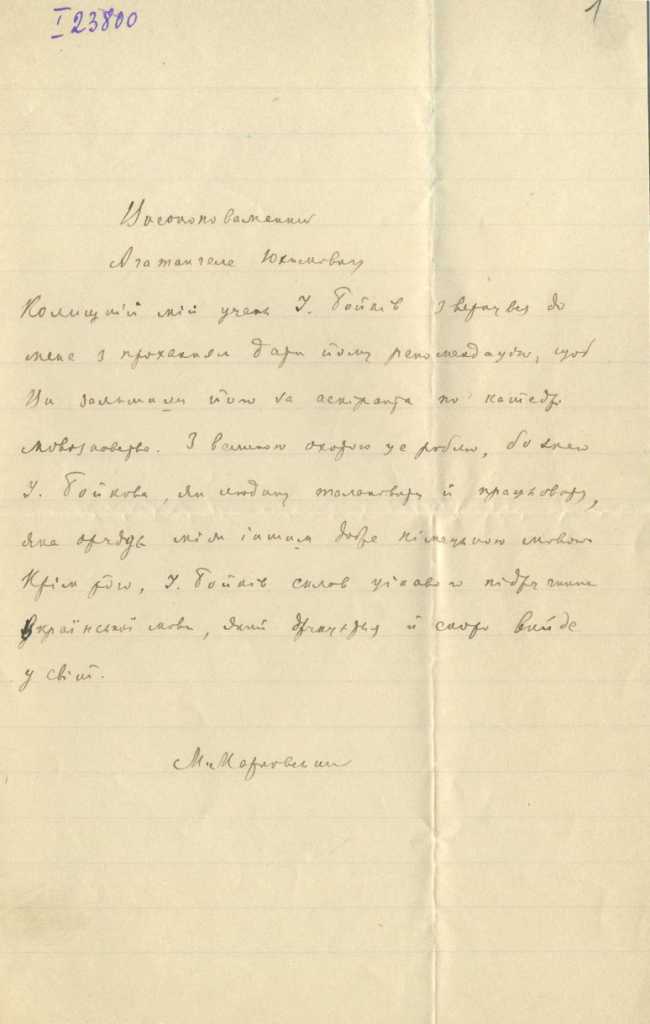 I 23800
1
Високоповажаний
Агатангеле Юхимович
Колишній мій учень І. Бойків звернувся до
мене з проханням дати йому рекомендацію, щоб
Ви залишили його за аспіранта по катедрі
мовознавства. З великою охотою це роблю, бо знаю
І. Бойкова, як людину талановиту й працьовиту,
яка орудує між іншим добре німецькою мовою
Крім того, І. Бойків склав цікавого підручника
української мови, який друкується й скоро вийде
у світ.